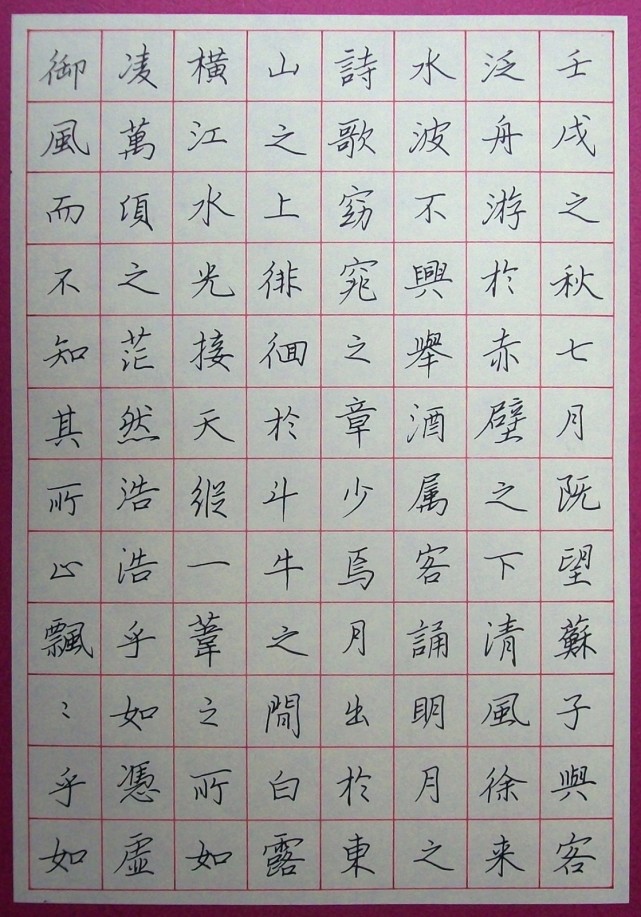 壬戌之秋七月既望蘇子與客
泛舟游於赤壁之下清風徐来
水波不興舉酒属客誦明月之
詩歌窈窕之章少焉月出於東
山之上徘徊於斗牛之間白露
橫江水光接天縱一葦之所如
凌萬頃之茫然浩浩乎如憑虛
御風而不知其所止飄〻乎如